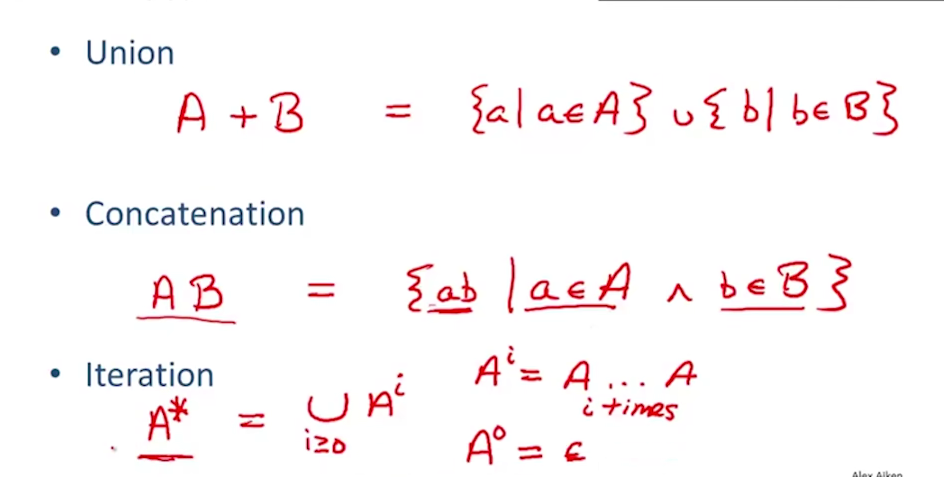 • Union
A + B = {a | a ∈ A} ∪ { b | b ∈ B}
• Concatenation
A B = {ab | a ∈ A ∧ b ∈ B}
• Iteration
Aⁱ = A ... A
i times
A* = ∪ Aⁱ
i≥0
A⁰ = ε
Alex Aiken